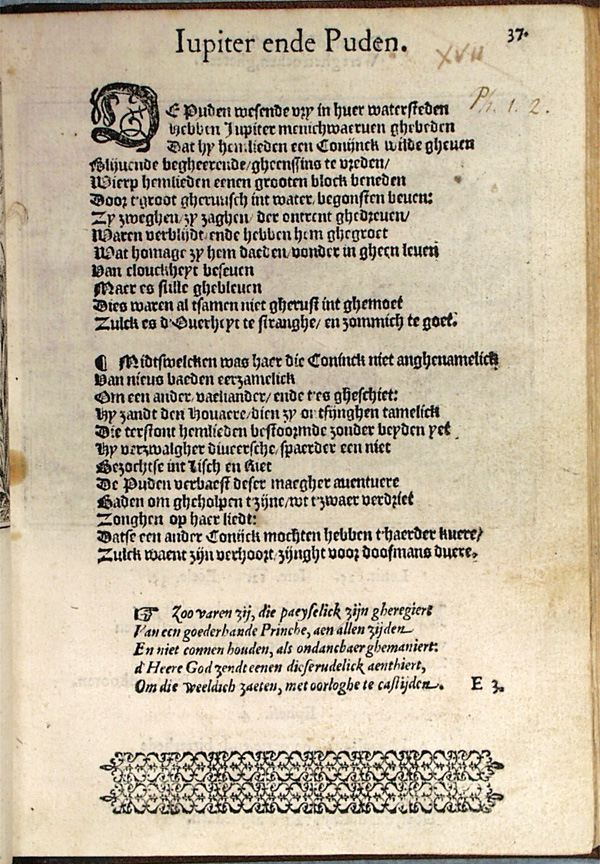 Iupiter ende Puden.
37.
XVII
Ph. 1. 2.
DE Puden wesende vry in huer watersteden
Hebben Jupiter menichwaeruen ghebeden
Dat hy hemlieden een Conijnck wilde gheuen
Blijuende begheerende/gheenssins te vreden/
Wierp hemlieden eenen grooten block beneden
Door t'groot gheruusch int water, begonsten beuen:
Zy zweghen/zy zaghen/ der ontrent ghedreuen/
Waren verblijdt/ende hebben hem ghegroet
Wat homage zy hem daeden/vonder in gheen leuen
Van clouckheyt beseuen
Maer es stille ghebleuen
Dies waren al tsamen niet gherust int ghemoet
Zulck es d'Ouerheyt te stranghe/ en zommich te goet.
¶ Midtswelcken was haer die Coninck niet anghenamelick
Van nieus baeden eerzamelick
Om een ander/vaeliander/ende t'es gheschiet:
Hy zandt den Houaere/dien zy ontfijnghen tamelick
Die terstont hemlieden bestoormde zonder beyden yet
Hy verzwalgher diueersche/spaerder een niet
Gezochtse int Lisch en Riet
De Puden verbaest deser maegher auentuere
Baden om gheholpen t'zijne/wt t'zwaer verdriet
Zonghen op haer liedt:
Datse een ander Conijck mochten hebben t'haerder kuere/
Zulck waent zijn verhoort/zijnght voor doofmans duere.
☞ Zoo varen zij, die paeyselick zijn gheregiert
Van een goederhande Prinche, aen allen zijden
En niet connen houden, als ondancbaer ghemaniert:
d'Heere God zendt eenen die ferudelick aenthiert,
Om die weeldich zaeten, met oorloghe te castijden.
E 3.